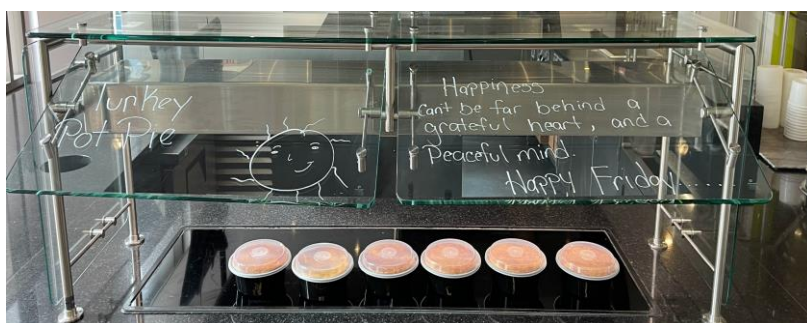 Turkey
Pot Pie
Happiness
Can't be far behind a
grateful heart, and a
Peaceful mind.
Happy Friday......